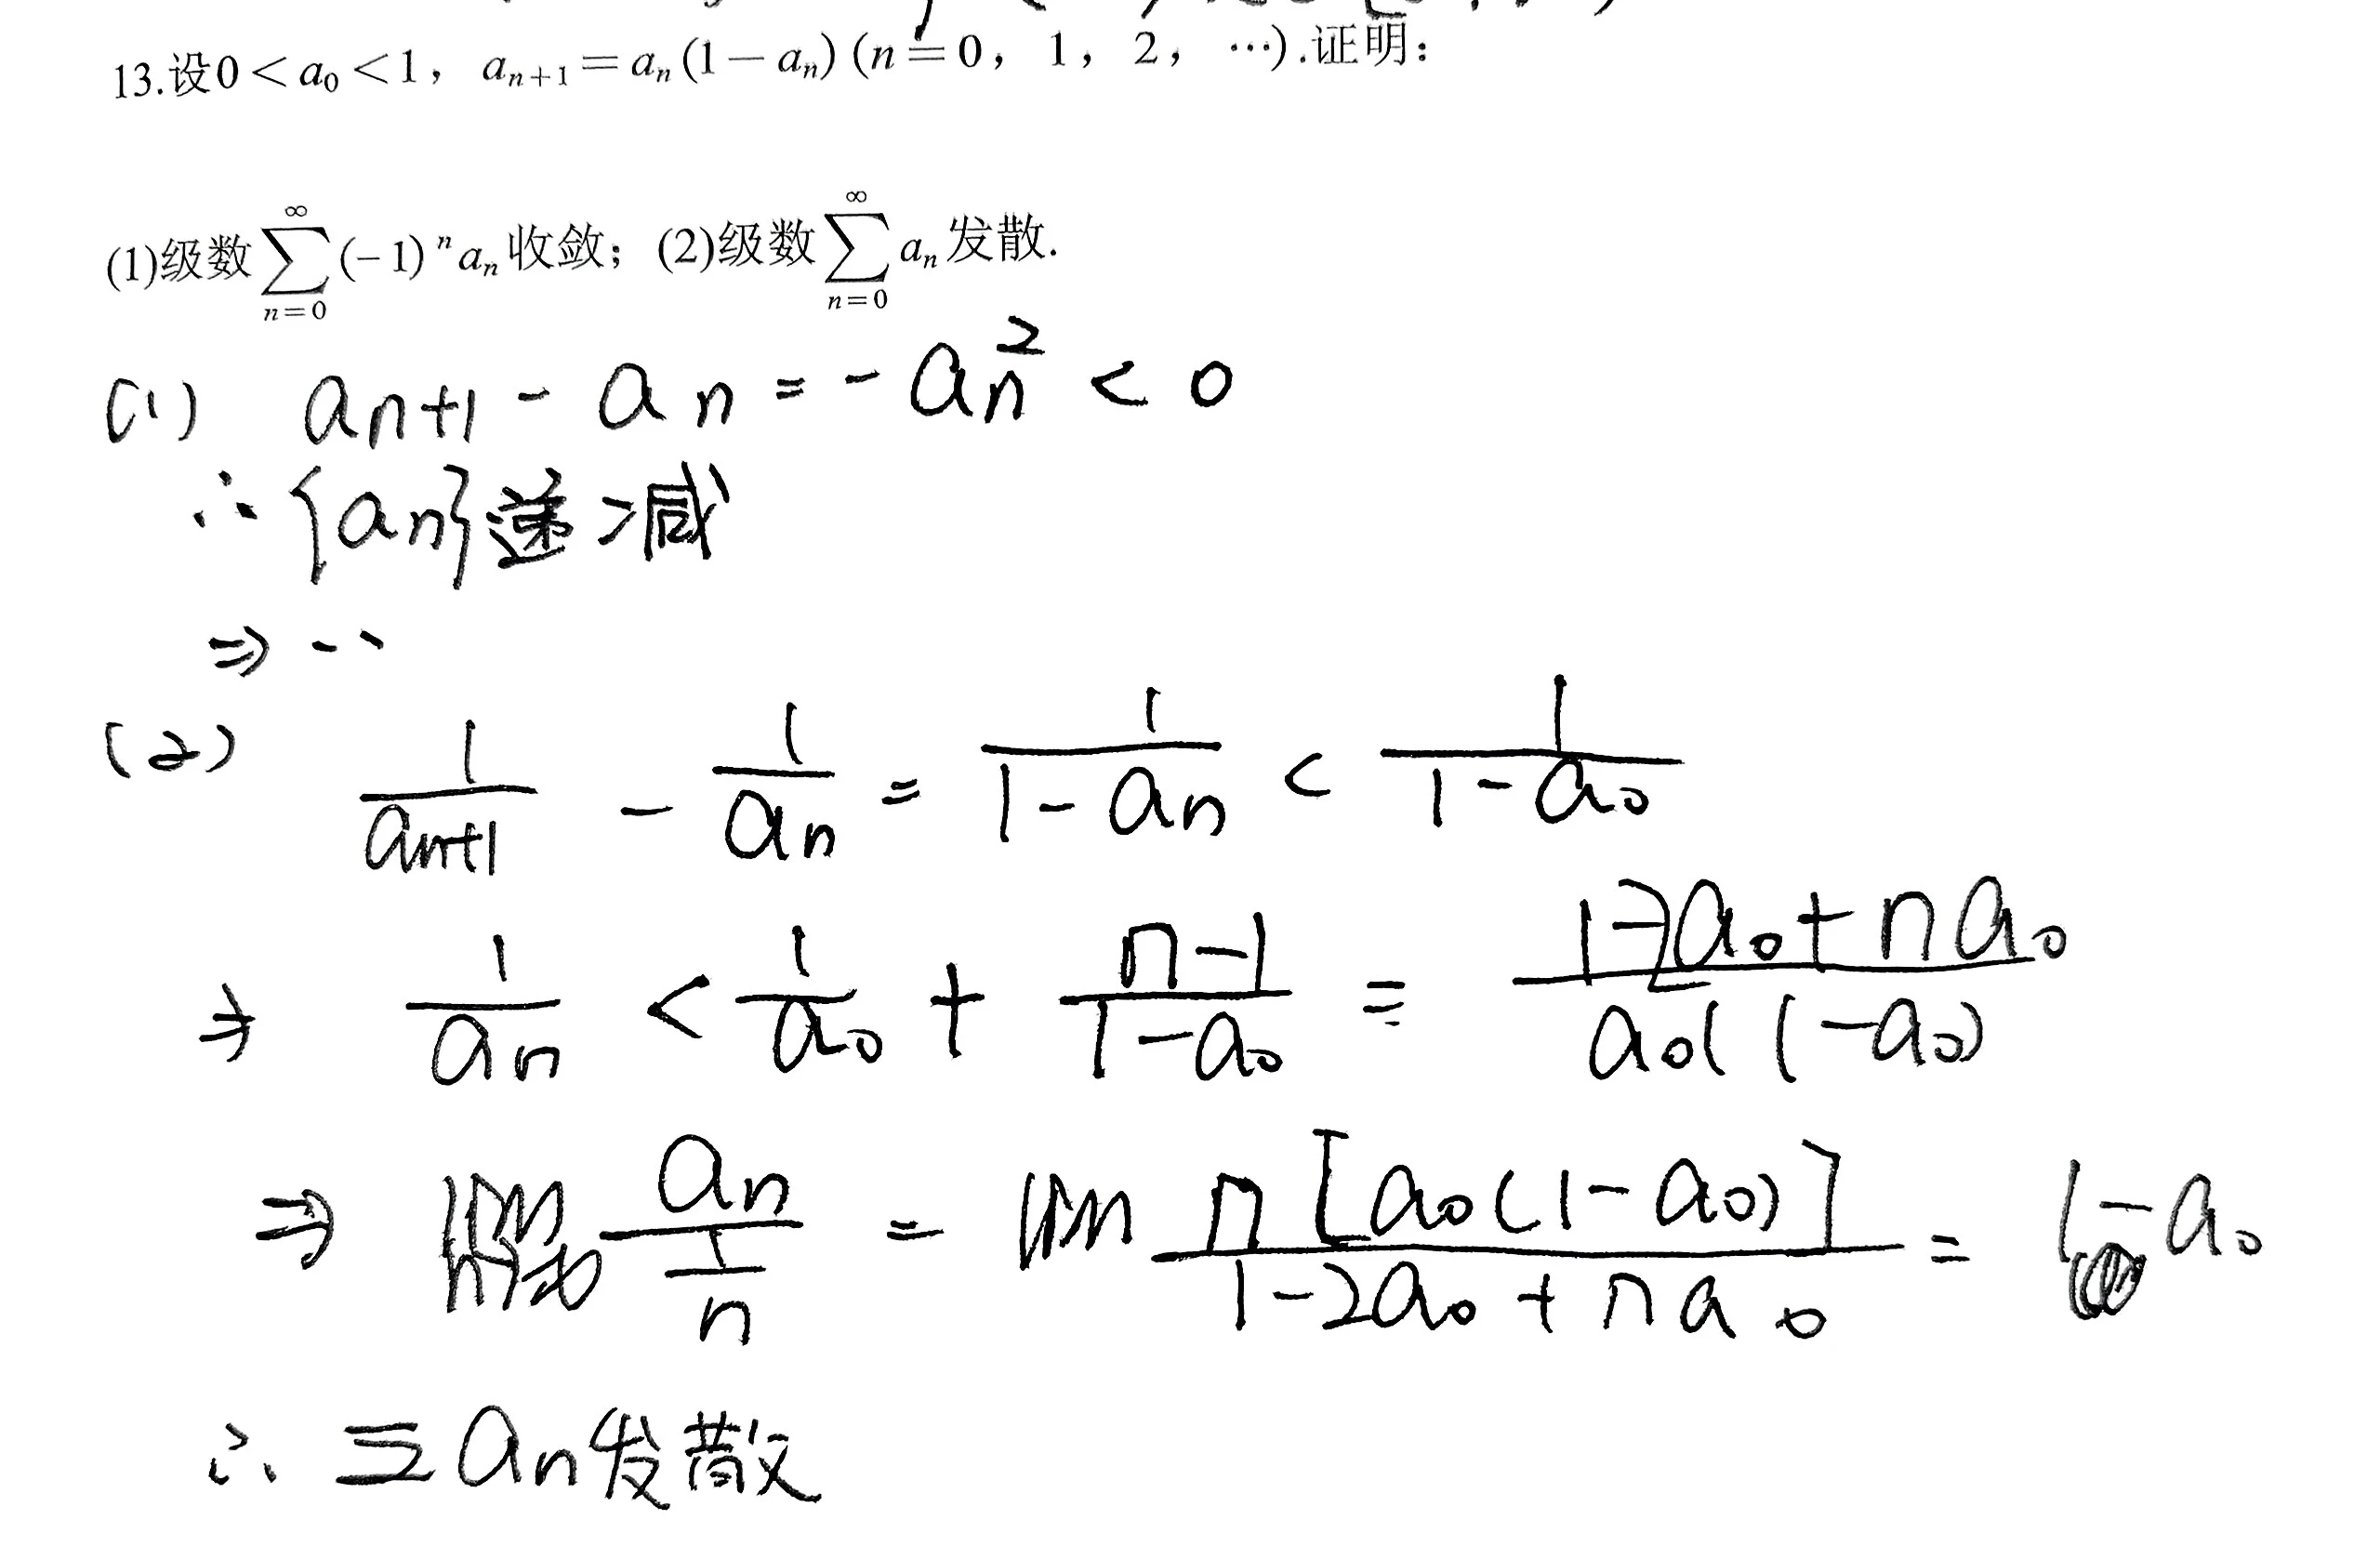 13.设0<a₀<1，aₙ₊₁=aₙ(1-aₙ)(n=0，1，2，…).证明：
(1)级数∑_{n=0}^{∞}(-1)ⁿaₙ收敛；(2)级数∑_{n=0}^{∞}aₙ发散.
(1) aₙ₊₁ - aₙ = -aₙ² < 0
∴ {aₙ}递减
⇒ ···
(2) 1/aₙ₊₁ - 1/aₙ = 1/(1-aₙ) < 1/(1-a₀)
⇒ 1/aₙ < 1/a₀ + (n-1)/(1-a₀) = (1-2a₀+na₀)/(a₀(1-a₀))
⇒ lim_{n→∞} aₙ/(1/n) = lim n[a₀(1-a₀)]/(1-2a₀+na₀) = 1-a₀
∴ ∑aₙ发散